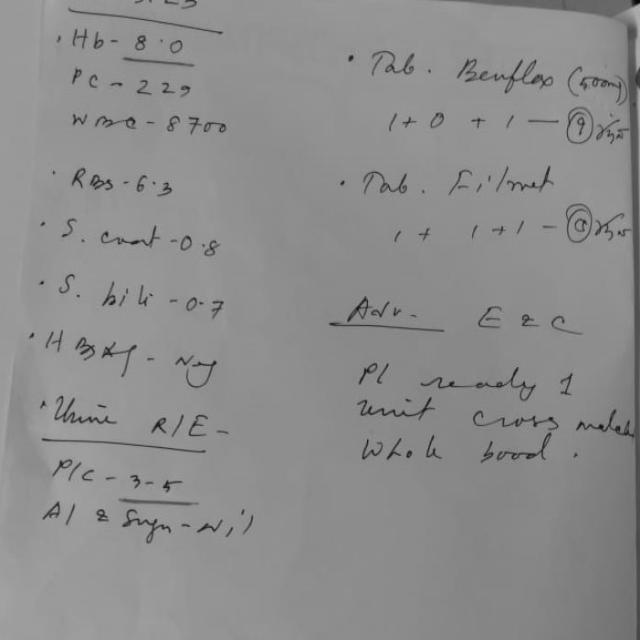 Hb - 8.0
PC - 229
WBC - 8700
RBS - 6.3
S. creat - 0.8
S. bili - 0.7
HBsAg - Neg
Urine R/E -
P/C - 3-5
Al & Sugar - Nil
Tab. Benflox (500mg)
1 + 0 + 1 —
Tab. Filmet
1 + 1 + 1 —
Adv. E & C
Pl ready 1
unit cross match
whole bood.